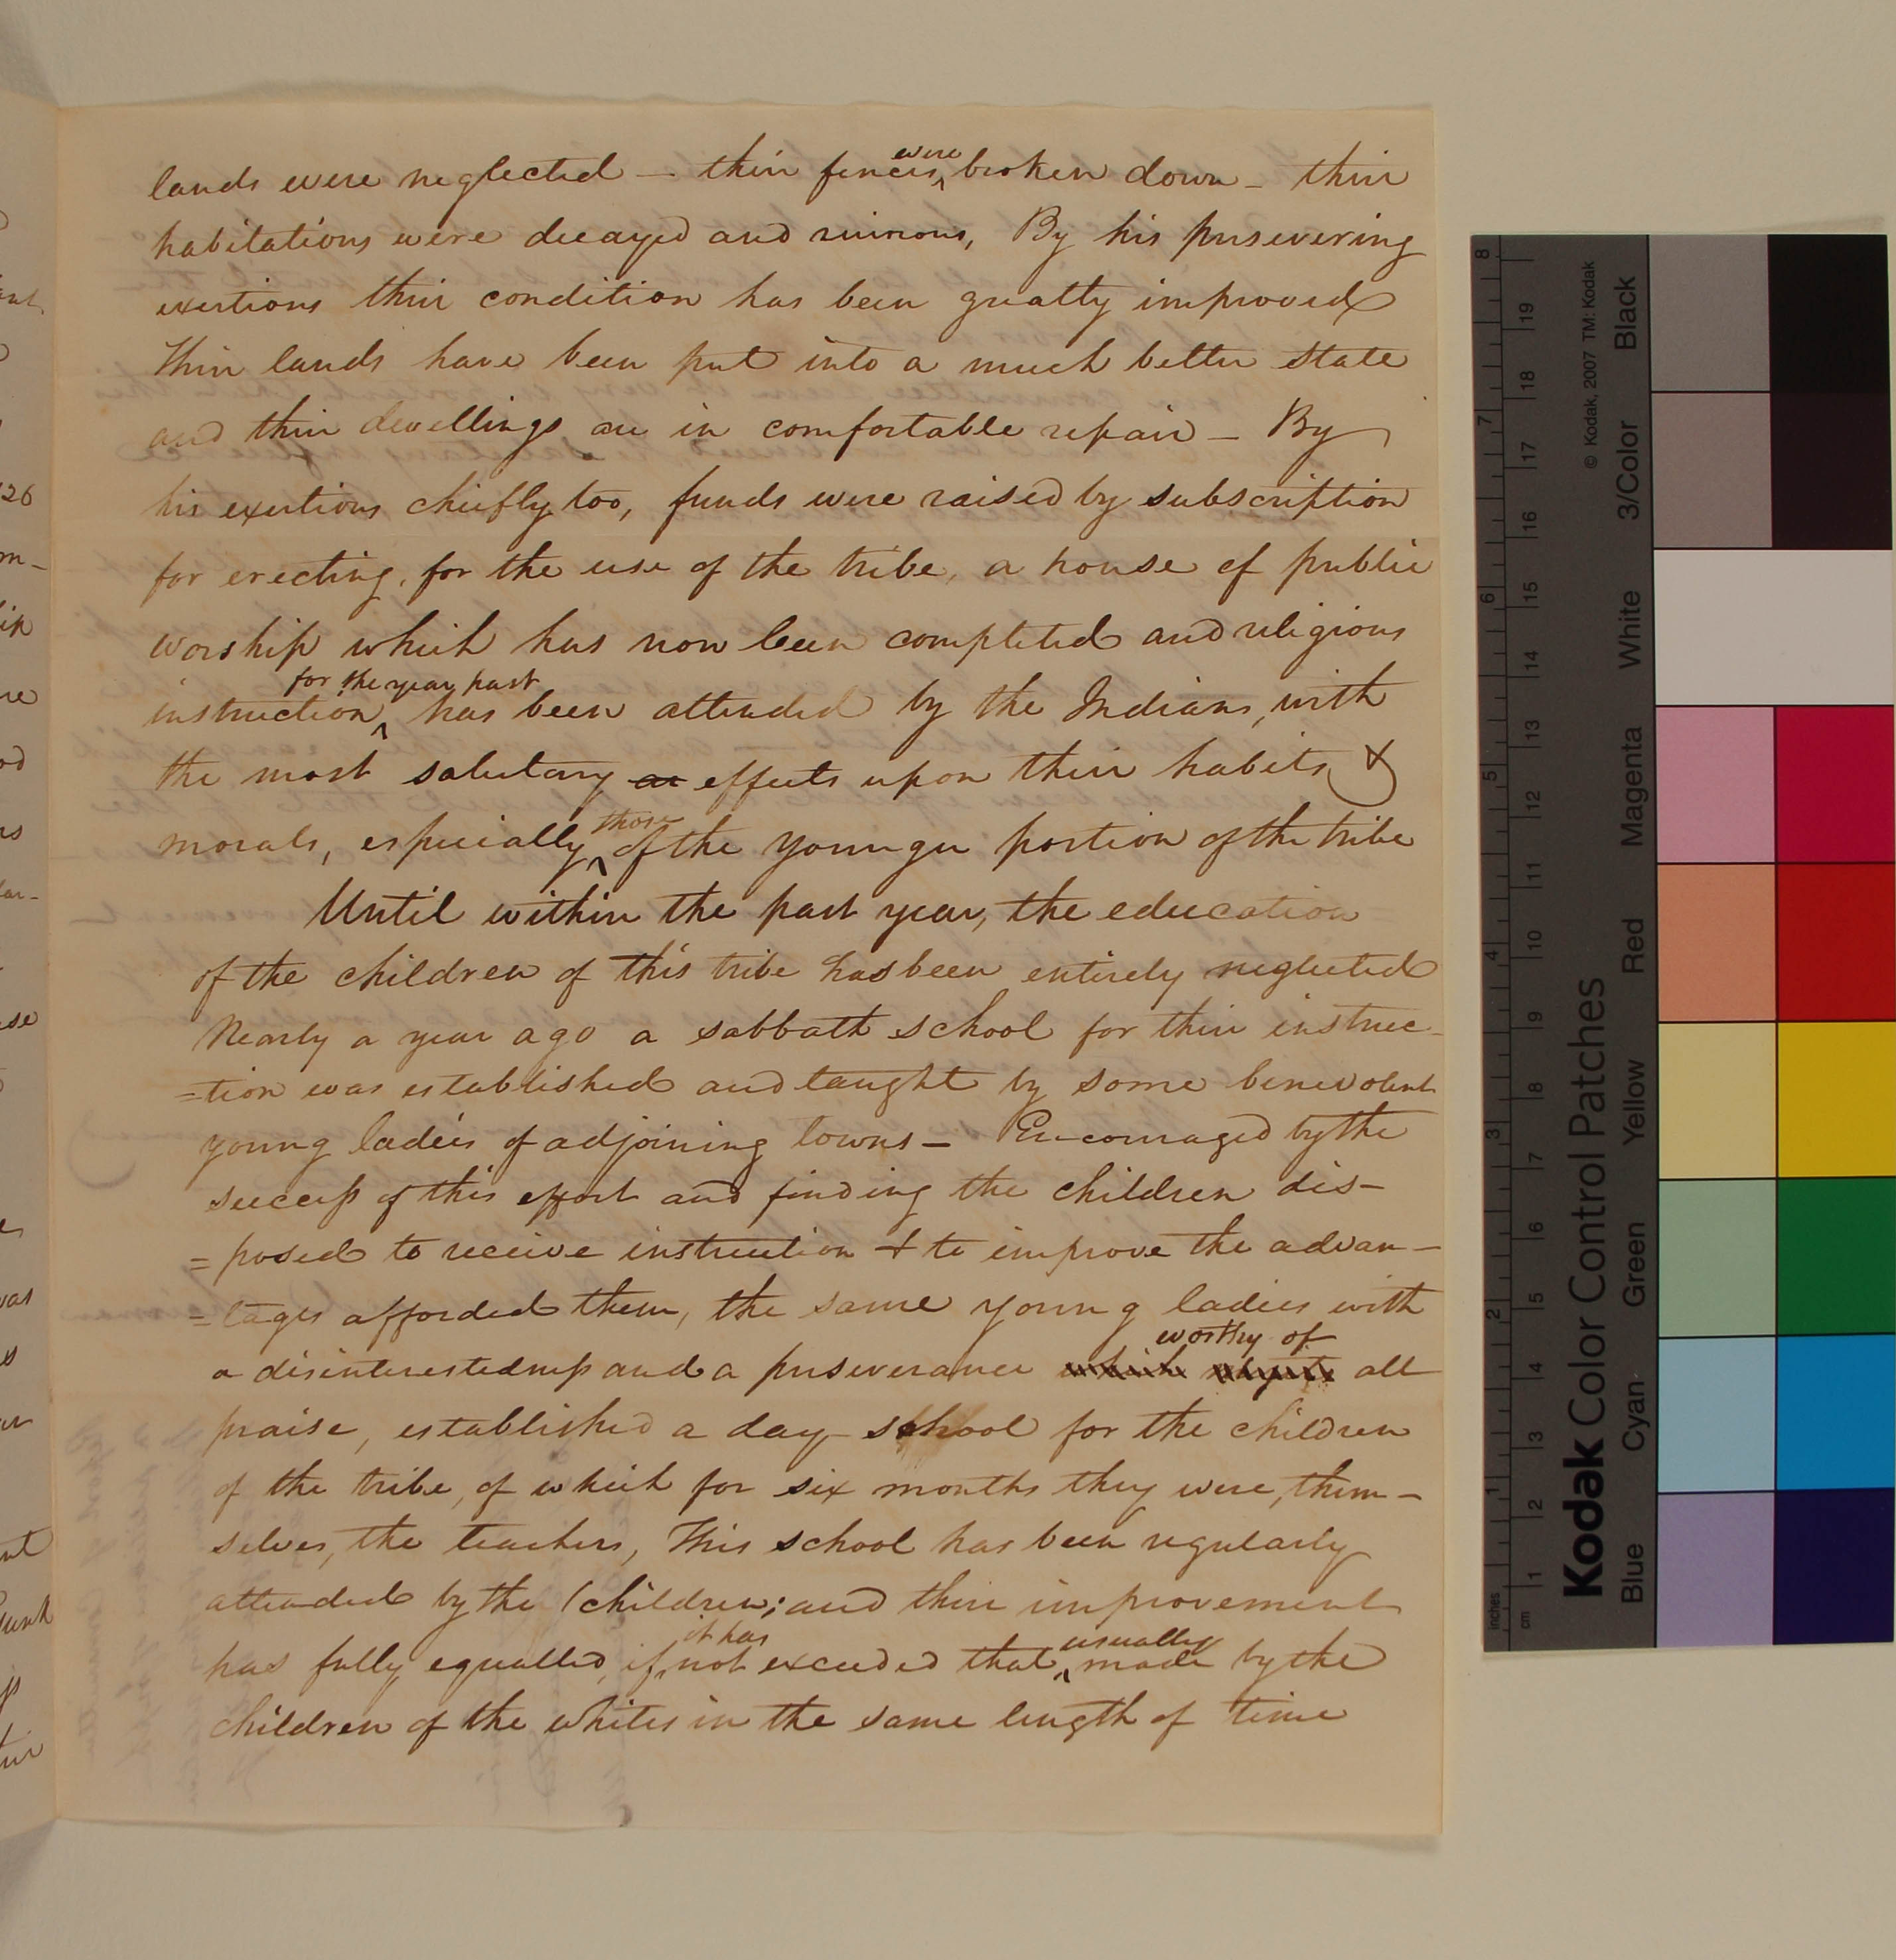 lands were neglected — their fences were broken down — their
habitations were decayed and ruinous, By his persevering
exertions their condition has been greatly improved
Their lands have been put into a much better state
and their dwellings are in comfortable repair — By
his exertions chiefly too, funds were raised by subscription
for erecting, for the use of the tribe, a house of public
worship which has now been completed and religious
instruction for the year past has been attended by the Indians, with
the most salutary effects upon their habits &
morals, especially those of the younger portion of the tribe
Until within the past year, the education
of the children of this tribe has been entirely neglected
Nearly a year ago a sabbath school for their instruc-
=tion was established and taught by some benevolent
young ladies of adjoining towns — Encouraged by the
success of this effort and finding the children dis-
=posed to receive instruction & to improve the advan-
=tages afforded them, the same young ladies with
a disinterestedness and a perseverance which worthy of all
praise, established a day school for the children
of the tribe, of which for six months they were, them-
selves, the teachers, This school has been regularly
attended by the children; and their improvement
has fully equalled, if it has not exceeded that usually made by the
children of the whites in the same length of time
26
Kodak Color Control Patches
© Kodak, 2007 TM: Kodak
Blue Cyan Green Yellow Red Magenta White 3/Color Black
inches 1 2 3 4 5 6 7 8
cm 1 2 3 4 5 6 7 8 9 10 11 12 13 14 15 16 17 18 19